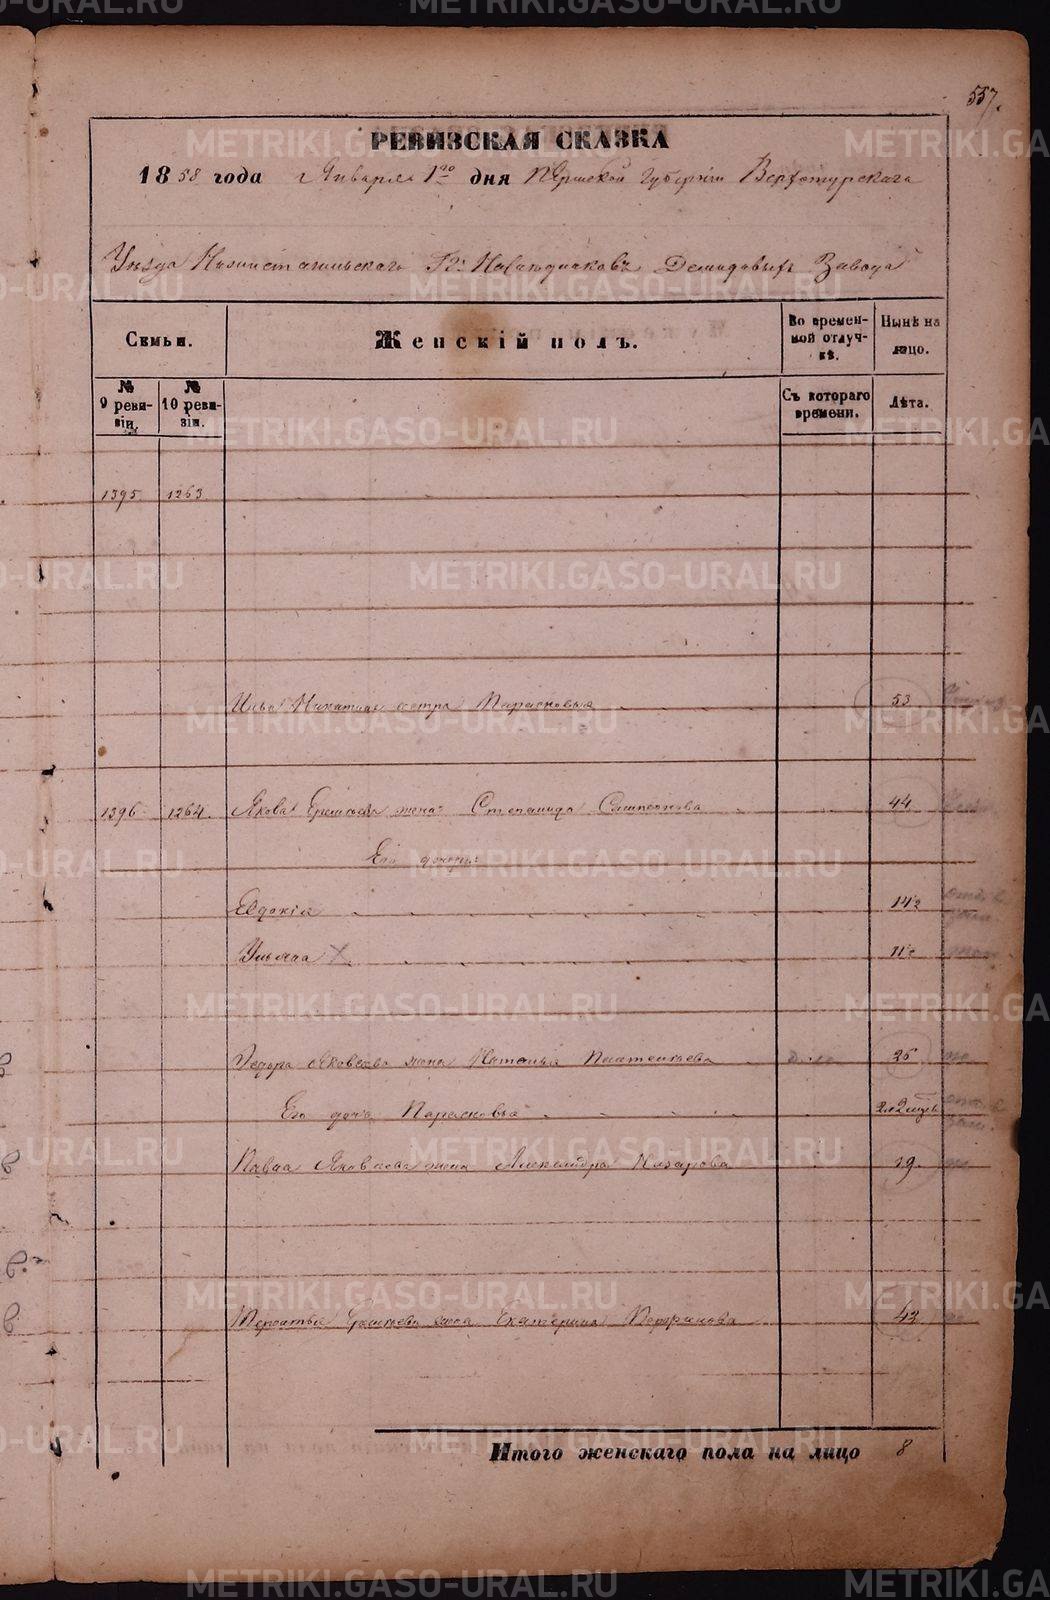 557.
РЕВИЗСКАЯ СКАЗКА
1858 года Января 1го дня Пермской Губернии Верхотурскаго
Уѣзда Нижнетагильскаго Гг. Наслѣдниковъ Демидовыхъ Завода
Семьи.
Женскій полъ.
Во времен-
ной отлуч-
кѣ.
Нынѣ на
лицо.
№
9 реви-
зіи.
№
10 реви-
зіи.
Съ котораго
времени.
Лѣта.
1395 1263
Ильи Никитина сестра Парасковья 53
1396 1264. Якова жена Степанида 44
Его дочери
Евдокія 14½
Ульяна 11½
Федора Яковлева жена Наталья 26
Его дочь Парасковья
Павла Яковлева жена Александра Назарова 19.
Терентья жена Екатерина 43
Итого женскаго пола на лицо 8
METRIKI.GASO-URAL.RU